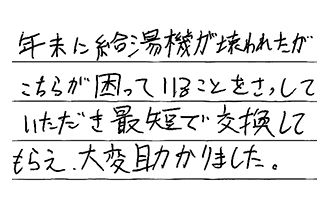 年末に給湯機が壊われたが
こちらが困っていることをさっして
いただき最短で交換して
もらえ、大変助かりました。